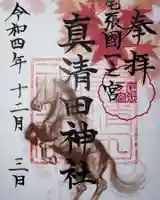 奉拝
尾張國一之宮
真清田神社
令和四年十二月三日